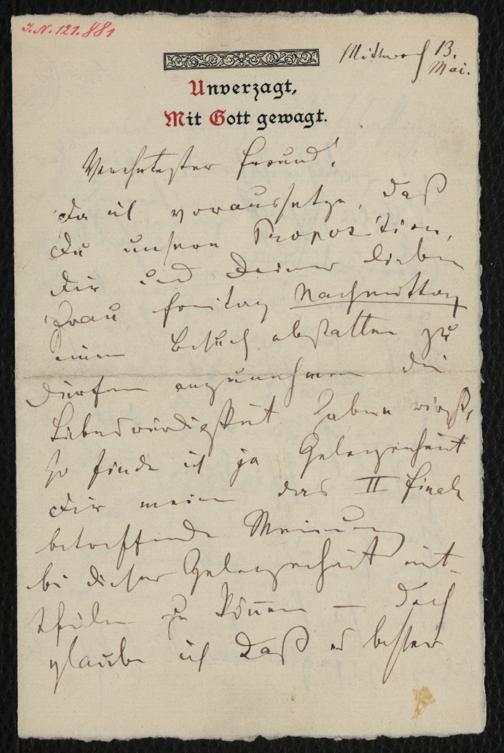 I.N. 121.881
Mittwoch 13.
Mai.
Unverzagt,
Mit Gott gewagt.
Verehrtester Freund!
Da ich voraussetze, daß
Du unsere Proposition,
Dir und Deiner lieben
Frau Freitag Nachmittag
einen Besuch abstatten zu
dürfen anzunehmen die
Liebenswürdigkeit haben wirst,
so finde ich ja Gelegenheit
Dir meine das II Finale
betreffende Meinung
bei dieser Gelegenheit mit-
theilen zu können — doch
glaube ich daß es besser